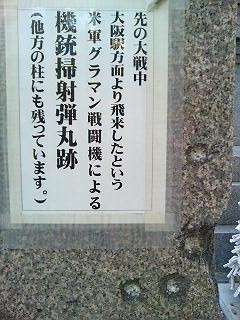 先の大戦中
大阪駅方面より飛来したという
米軍グラマン戦闘機による
機銃掃射弾丸跡
(他方の柱にも残っています。)